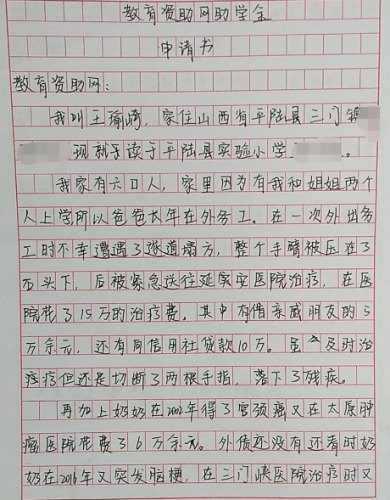 教育资助网助学金
申请书
教育资助网：
我叫王瑜崎，家住山西省平陆县三门镇
现就学读于平陆县实验小学
。
我家有六口人，家里因为有我和姐姐两个
人上学所以爸爸长年在外务工。在一次外出务
工时不幸遭遇了遂道塌方，整个手臂被压在了
石头下，后被紧急送往延安医院治疗，在医
院花了15万的治疗费。其中有借亲戚朋友的5
万余元，还有向信用社贷款10万。虽然及时治
疗但还是切断了两根手指，落下了残疾。
再加上奶奶在2002年得了宫颈癌又在太原肿
瘤医院花费了6万余元。外债还没有还有时奶
奶在2016年又突发脑梗，在三门峡医院治疗时又